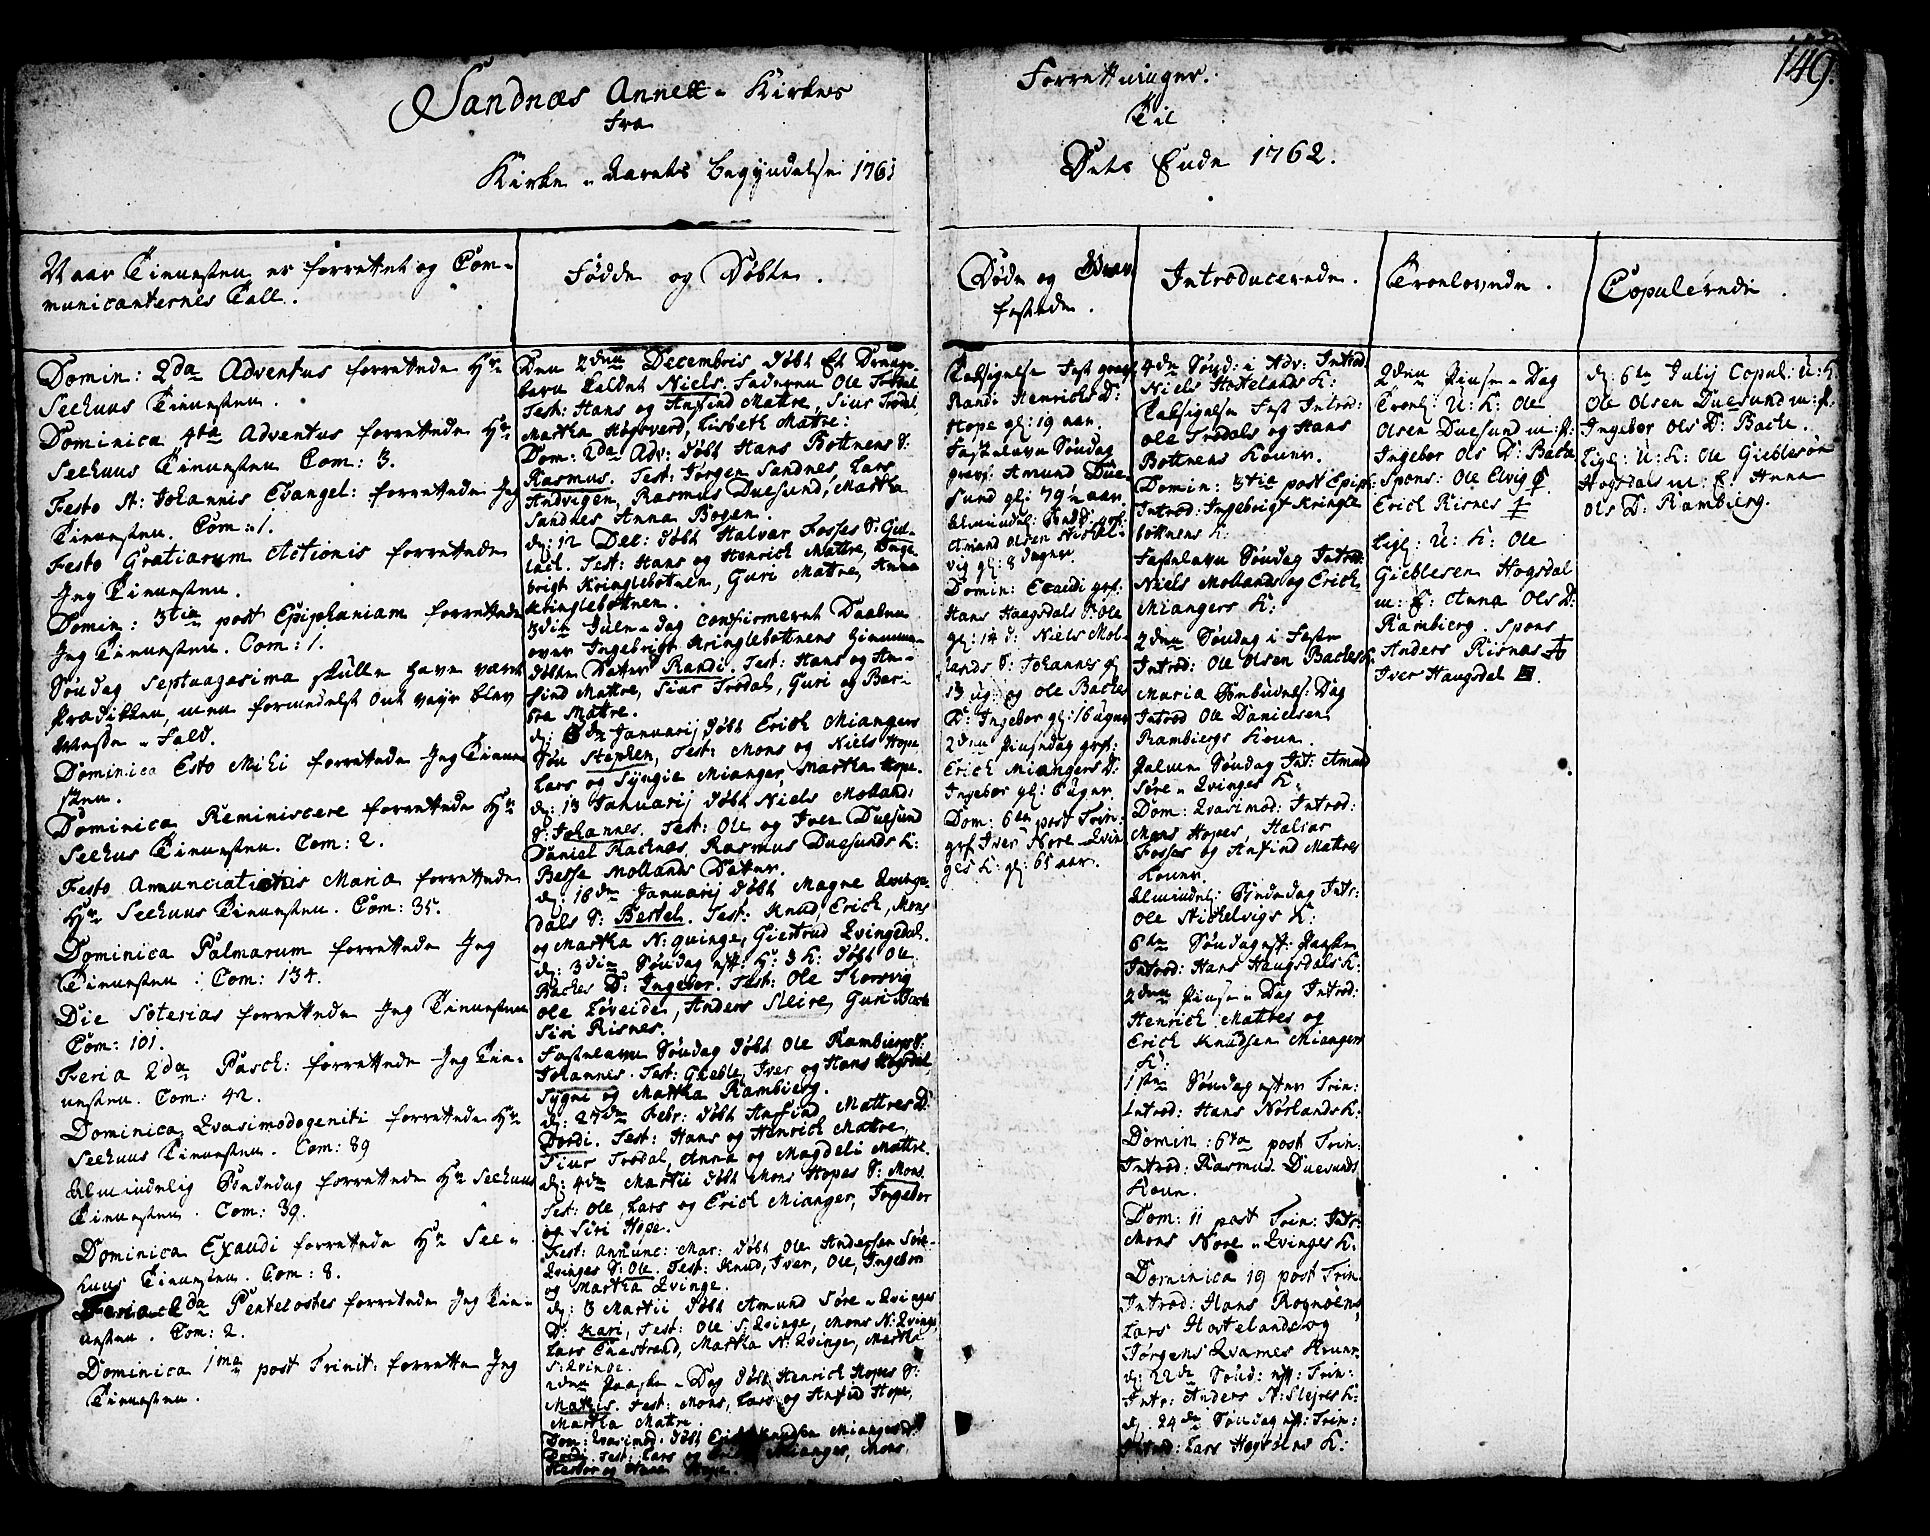 149.
Sandnæs Annex-Kirkes
Forrettninger.
fra
Til
Kirke-Aarets begyndelse 1761
Dets Ende 1762.
Naar Tienesten er forrettet og Com-
municanternes Tall.
Domin: 2da Adventus forrettede Hr
Seehuus Tienesten.
Dominica 4ta Adventus forrettede Hr
Seehuus Tienesten Com: 3.
Festo St: Johannis Evangel: forrettede Jeg
Tienesten. Com: 1.
Festo Gratiarum Actionis forrettede
Jeg Tienesten.
Domin: 3tia post Epiphaniam forrettede
Jeg Tienesten. Com: 1.
Søndag Septuagesima skulle have været
Prædikken, men formedelst ont veyr blev
Messe-Fald.
Dominica Esto Mihi forrettede Jeg Tiene
sten.
Dominica Reminiscere forrettede Hr
Seehus Tienesten. Com: 2.
Festo Annunciationis Maria forrettede
Hr Seehuus Tienesten. Com: 35.
Dominica Palmarum forrettede Jeg
Tienesten: Com: 134.
Die Soterias forrettede Jeg Tienesten
Com: 101.
Feria 2da Pasch: forrettede Jeg Tien-
nesten. Com: 42.
Dominica Qvasimodogeniti forrettede Hr
Seehuus Tienesten. Com: 89
Almindelig Bededag forrettede Hr Seehuus
Tienesten. Com: 39.
Dominica Exaudi forrettede Hr See-
huus Tienesten. Com: 8.
Feria 2da Pentecostes forrettede Jeg Tie-
nesten. Com: 2.
Dominica 1ma post Trinit: forrette Jeg
Tienesten.
Fødde og Døbte.
Den 2den Decembris døbt Et Drenge
barn kaldet Niels. Faderen Ole Trødal
Test: Hans og Anfind Mattre, Siur Trødal,
Martha Høgsverd, Lisbeth Matre:
Dom: 2da Adv: døbt Hans Bottnens S:
Rasmus. Test: Jørgen Sandnes, Lars
Andvigen, Rasmus Duesund, Martha
Sandnes Anna Bogen.
d: 12 Dec: døbt Halver Fosses S: Gul-
lach. Test: Hans og Henrich Mattre, Inge
brigt Kringlebotnen, Guri Matre, Anna
Kringlebottnen.
3die Jule-dag confirmeret Daaben
over Ingebrigt Kringlebottnens hiemme-
døbte Datter Randi. Test: Hans og An-
find Mattre, Siur Trødal, Guri og Beri-
tha Matre.
d: Januarij døbt Erich Miangers
Søn Stephen, Test: Mons og Niels Hope
Lars og Syngie Mianger, Martha Hope.
d: 13 Januarij døbt Niels Mollands
S: Johannes. Test: Ole og Iver Duesund
Daniel Racknæs, Rasmus Duesunds K:
Besse Mollands Datter.
d: 16den Januarij døbt Magne Qvinge-
dals S: Bertel. Test: Knud, Erich, Mons
og Martha N: qvinge, Giertrud Qvingedal.
d: 3die Søndag eft: H: 3 K: døbt Ole
Baches D: Ingebor. Test: Ole Thorsvig
Ole Løveide, Anders Sleire, Guri Bache
Siri Risnes.
Fastelavns Søndag døbt Ole Rambiergs S:
Johannes. Test: Gieble, Iver og Hans Høgsdal
Sygni og Martha Rambierg.
d: 27de Febr: døbt Anfind Mattres D:
Dordi. Test: Hans og Henrich Mattre,
Siur Trødal, Anna og Magdeli Mattre.
d: 4de Martii døbt Mons Hopes S: Mons
Test: Ole, Lars og Erich Mianger, Ingebor
og Siri Hope.
Fest: Annunc: Mar: døbt Ole Andersen Søre-
Qvinges S: Ole. Test: Knud, Iver, Ole, Ingebor
og Martha Qvinge.
d: 3 Martii døbt Amund Søre-Qvinges
D: Kari, Test: Ole S: Qvinge, Mons N: Qvinge,
Lars Enestrand, Martha N: Qvinge, Martha
S: Qvinge.
2den Paaske-Dag døbt Henrich Hopes S:
Mathis. Test: Mons, Lars og Anfind Hope,
Martha Mattre.
Dom: Qvasimod. døbt Erich Knudsen Miangers D:
Dordi. Test: Lars og Mianger, Mons
og Hope.
Døde og Grav
festede.
Taksigelses Fest gravf:
Randi Henrichs D:
Hope gl: 19 aar.
Fastelavns Søndag
gravf: Amund Due
sund gl: 79 aar
Almindel: Beded: grf:
Amund Olsen Nickel-
vig gl: 8 dager.
Domin: Exaudi grf:
Hans Haagsdals S: Ole
gl: 14 d: Niels Mol-
lands S: Johannes gl
13 ug: og Ole Baches
D: Ingebor gl: 16 uger
2den Pinsedag grf:
Erich Miangers D:
Ingebor gl: 6 uger
Dom: 6te post Trin:
grf Iver Nore-Qvin
ges K: gl: 65 aar.
Introducerede.
4de Sønd: i Adv: Introd
Niels Hostelands K:
Taksigelse Fest Introd:
Ole Trødals og Hans
Bottnens Koner.
Domin: 3tia post Epiph:
Introd: Ingebrigt Kringle
bottnens K:
Fastelavns Søndag Introd:
Niels Mollands og Erich
Miangers K:
2den Søndag i Faste
Introd: Ole Olsen Baches K:
Maria Bebudels: Dag
Introd Ole Danielsen
Rambiergs Kone.
Palme Søndag Int: Amund
Søre-Qvinges K:
Dom: Qvasimod: Introd:
Mons Hopes, Halvor
Fosses og Anfind Mattres
Koner.
Almindel: Bededag Intr:
Ole Nickelvigs K:
6te Søndag eft: Paaske
Introd: Hans Haugsdals K:
2den Pinse-Dag Introd:
Henrich Mattres og
Erich Knudsen Miangers
K:
1ste Søndag efter Trin:
Introd: Hans Nørlands K:
Domin: 6ta post Trin:
Introd: Rasmus Duesunds
Kone.
Dom: 11 post Trin: Intr:
Mons Nore-Qvinges K:
Dominica 19 post Trin.
Introd: Hans Rognøens
Lars Hostelands og
Jørgens Qvames Koner.
d: 22de Sønd: eft: Trin:
Intr: Anders N: Slejres K:
d: 24de Søndag eft: Trin:
Introd: Lars Høysæters K:
Troelovede.
2den Pinse-Dag
Troel: U: K: Ole
Olsen Duesund m: P:
Ingebor Ols D: Bache
Spons: Ole Elvig
Erich Risnes
Ligel: U: K: Ole
Gieblesen Hogsdal
m: P: Anna Ols D:
Rambierg. Spons
Anders Risnes
Iver Haugsdal
Copulerede.
d: 6te Julij Copul: U: K:
Ole Olsen Duesund m: P:
Ingebor Ols D: Bache.
Ligel: U: K: Ole Gieblesøn
Hogsdals m: P: Anna
Ols D: Rambierg.